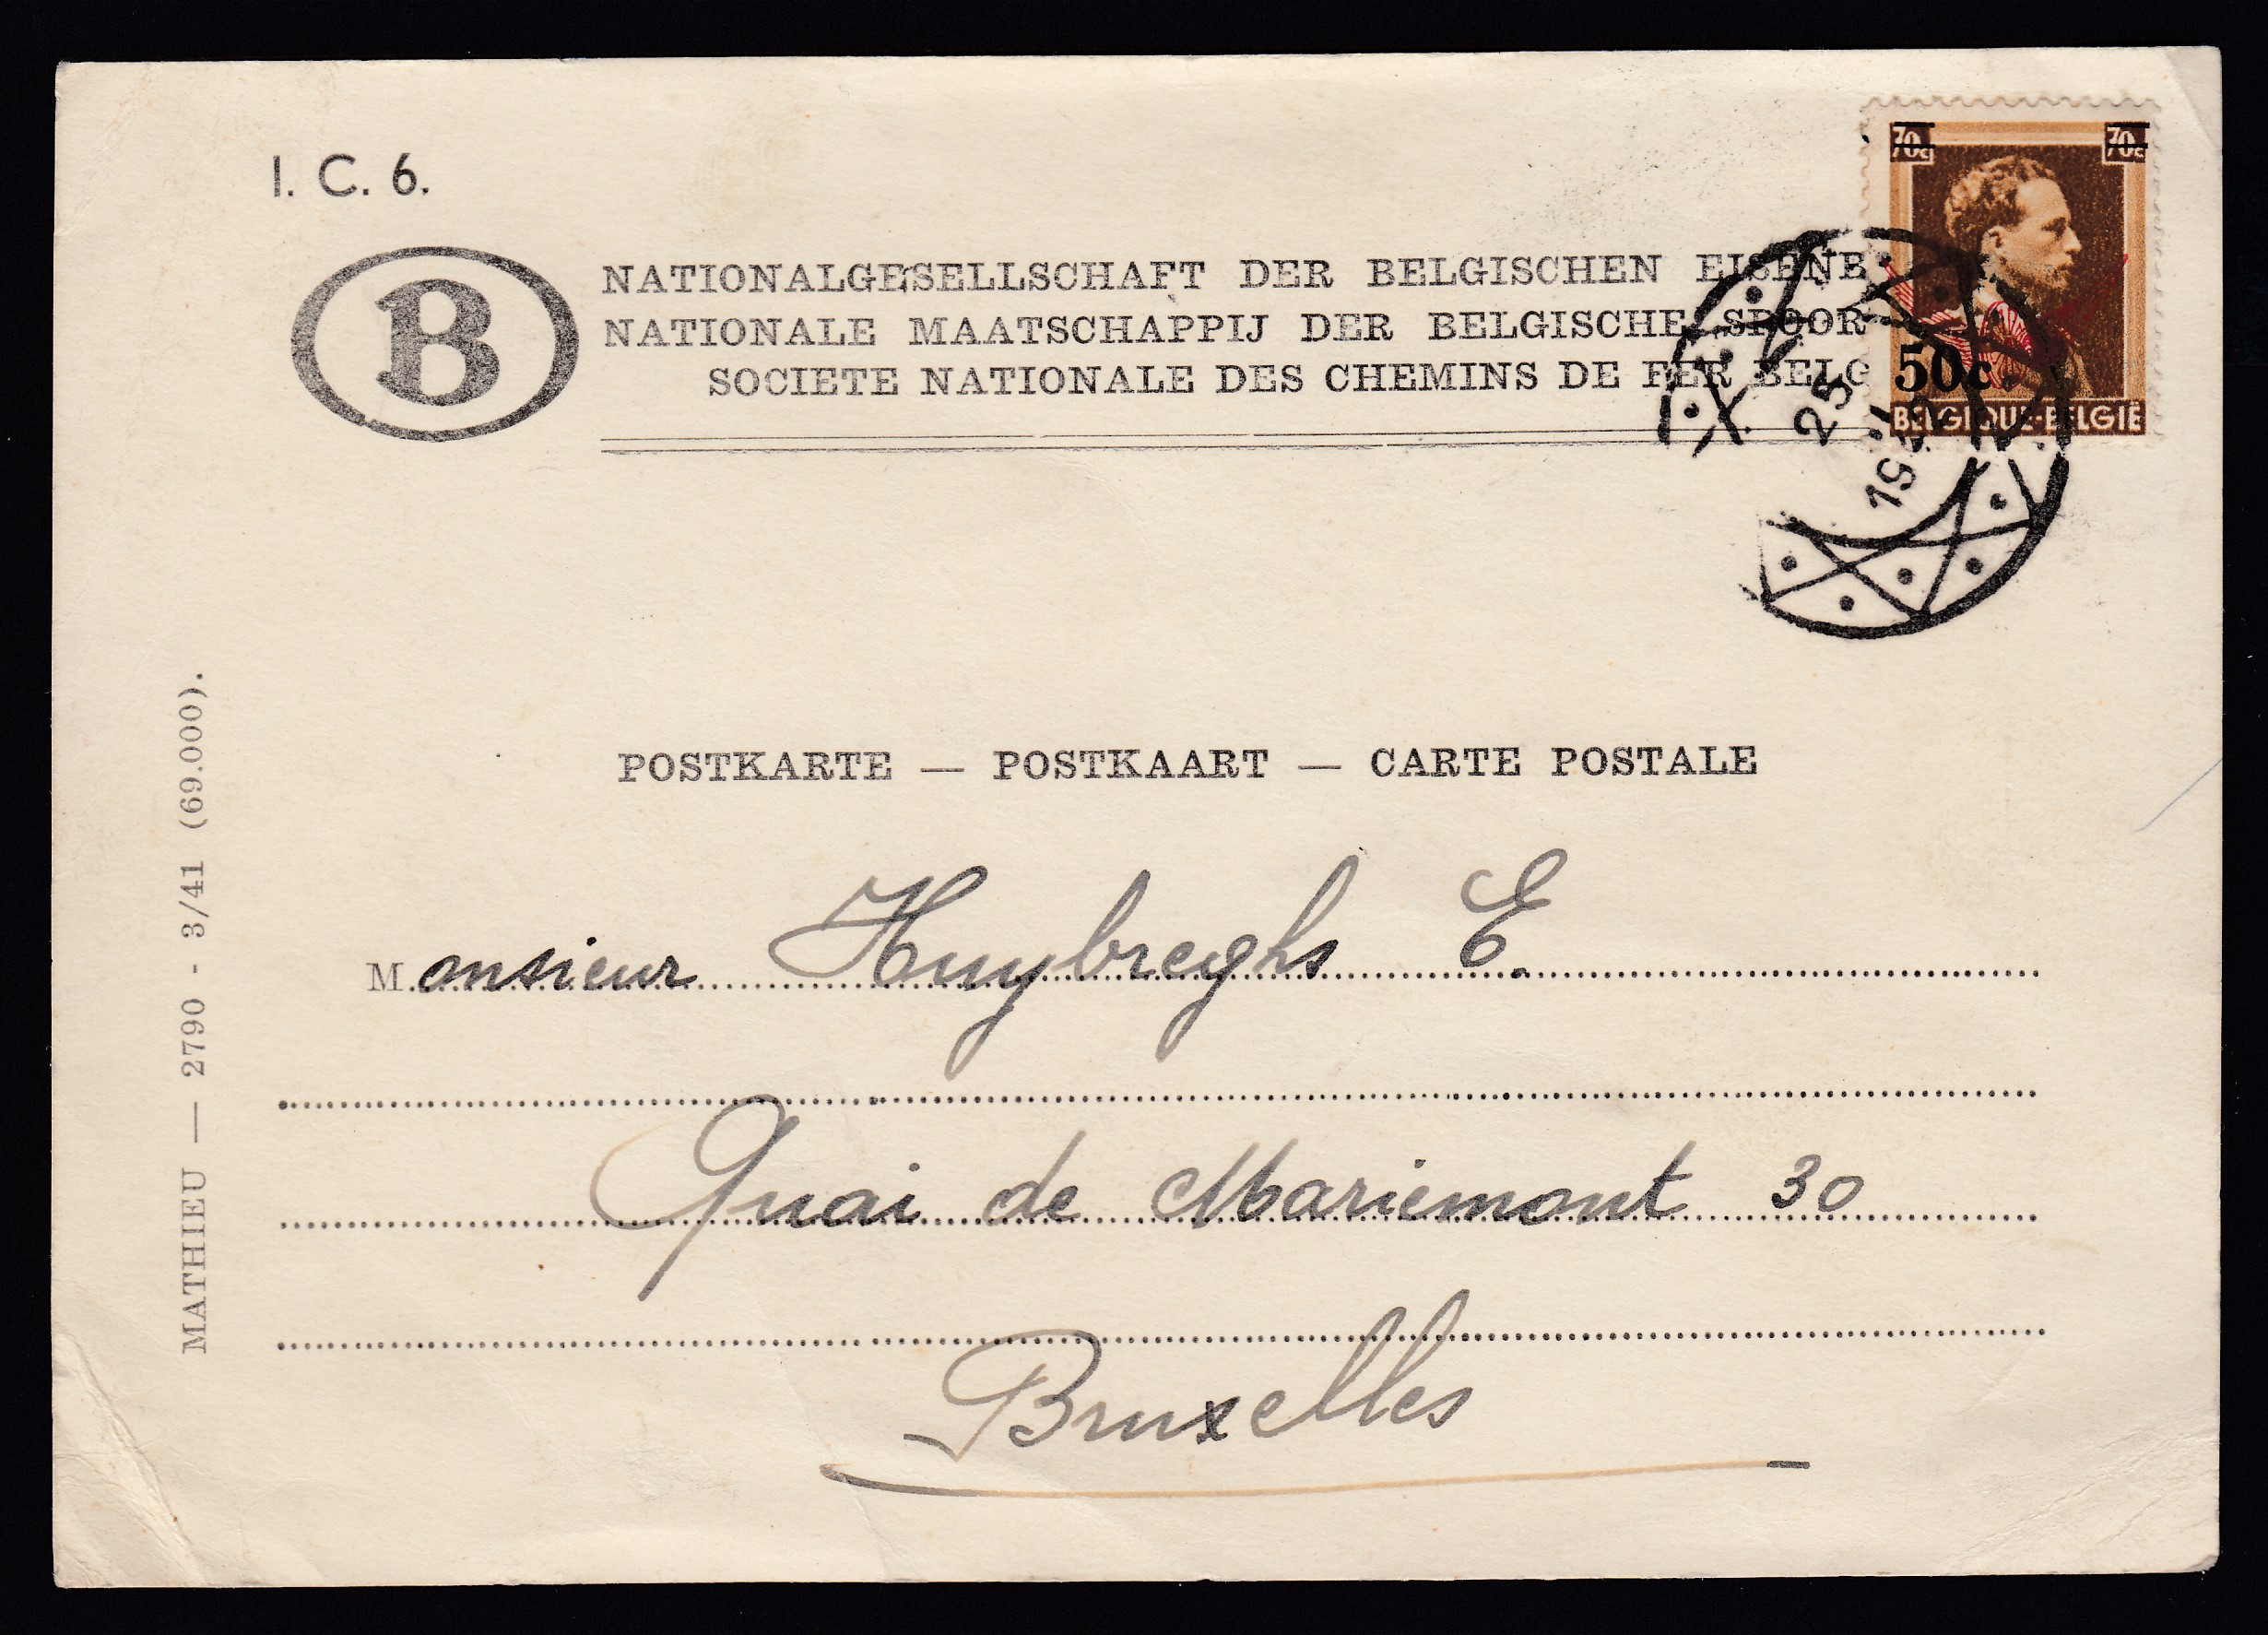 I. C. 6.
B
NATIONALGESELLSCHAFT DER BELGISCHEN EISENB
NATIONALE MAATSCHAPPIJ DER BELGISCHE SPOOR
SOCIETE NATIONALE DES CHEMINS DE FER BELG
70c 70c
50c.
BELGIQUE·BELGIË
25
19
POSTKARTE — POSTKAART — CARTE POSTALE
Monsieur Huybreghs E.
Quai de Mariemont 30
Bruxelles
MATHIEU — 2790 - 3/41 (69.000).